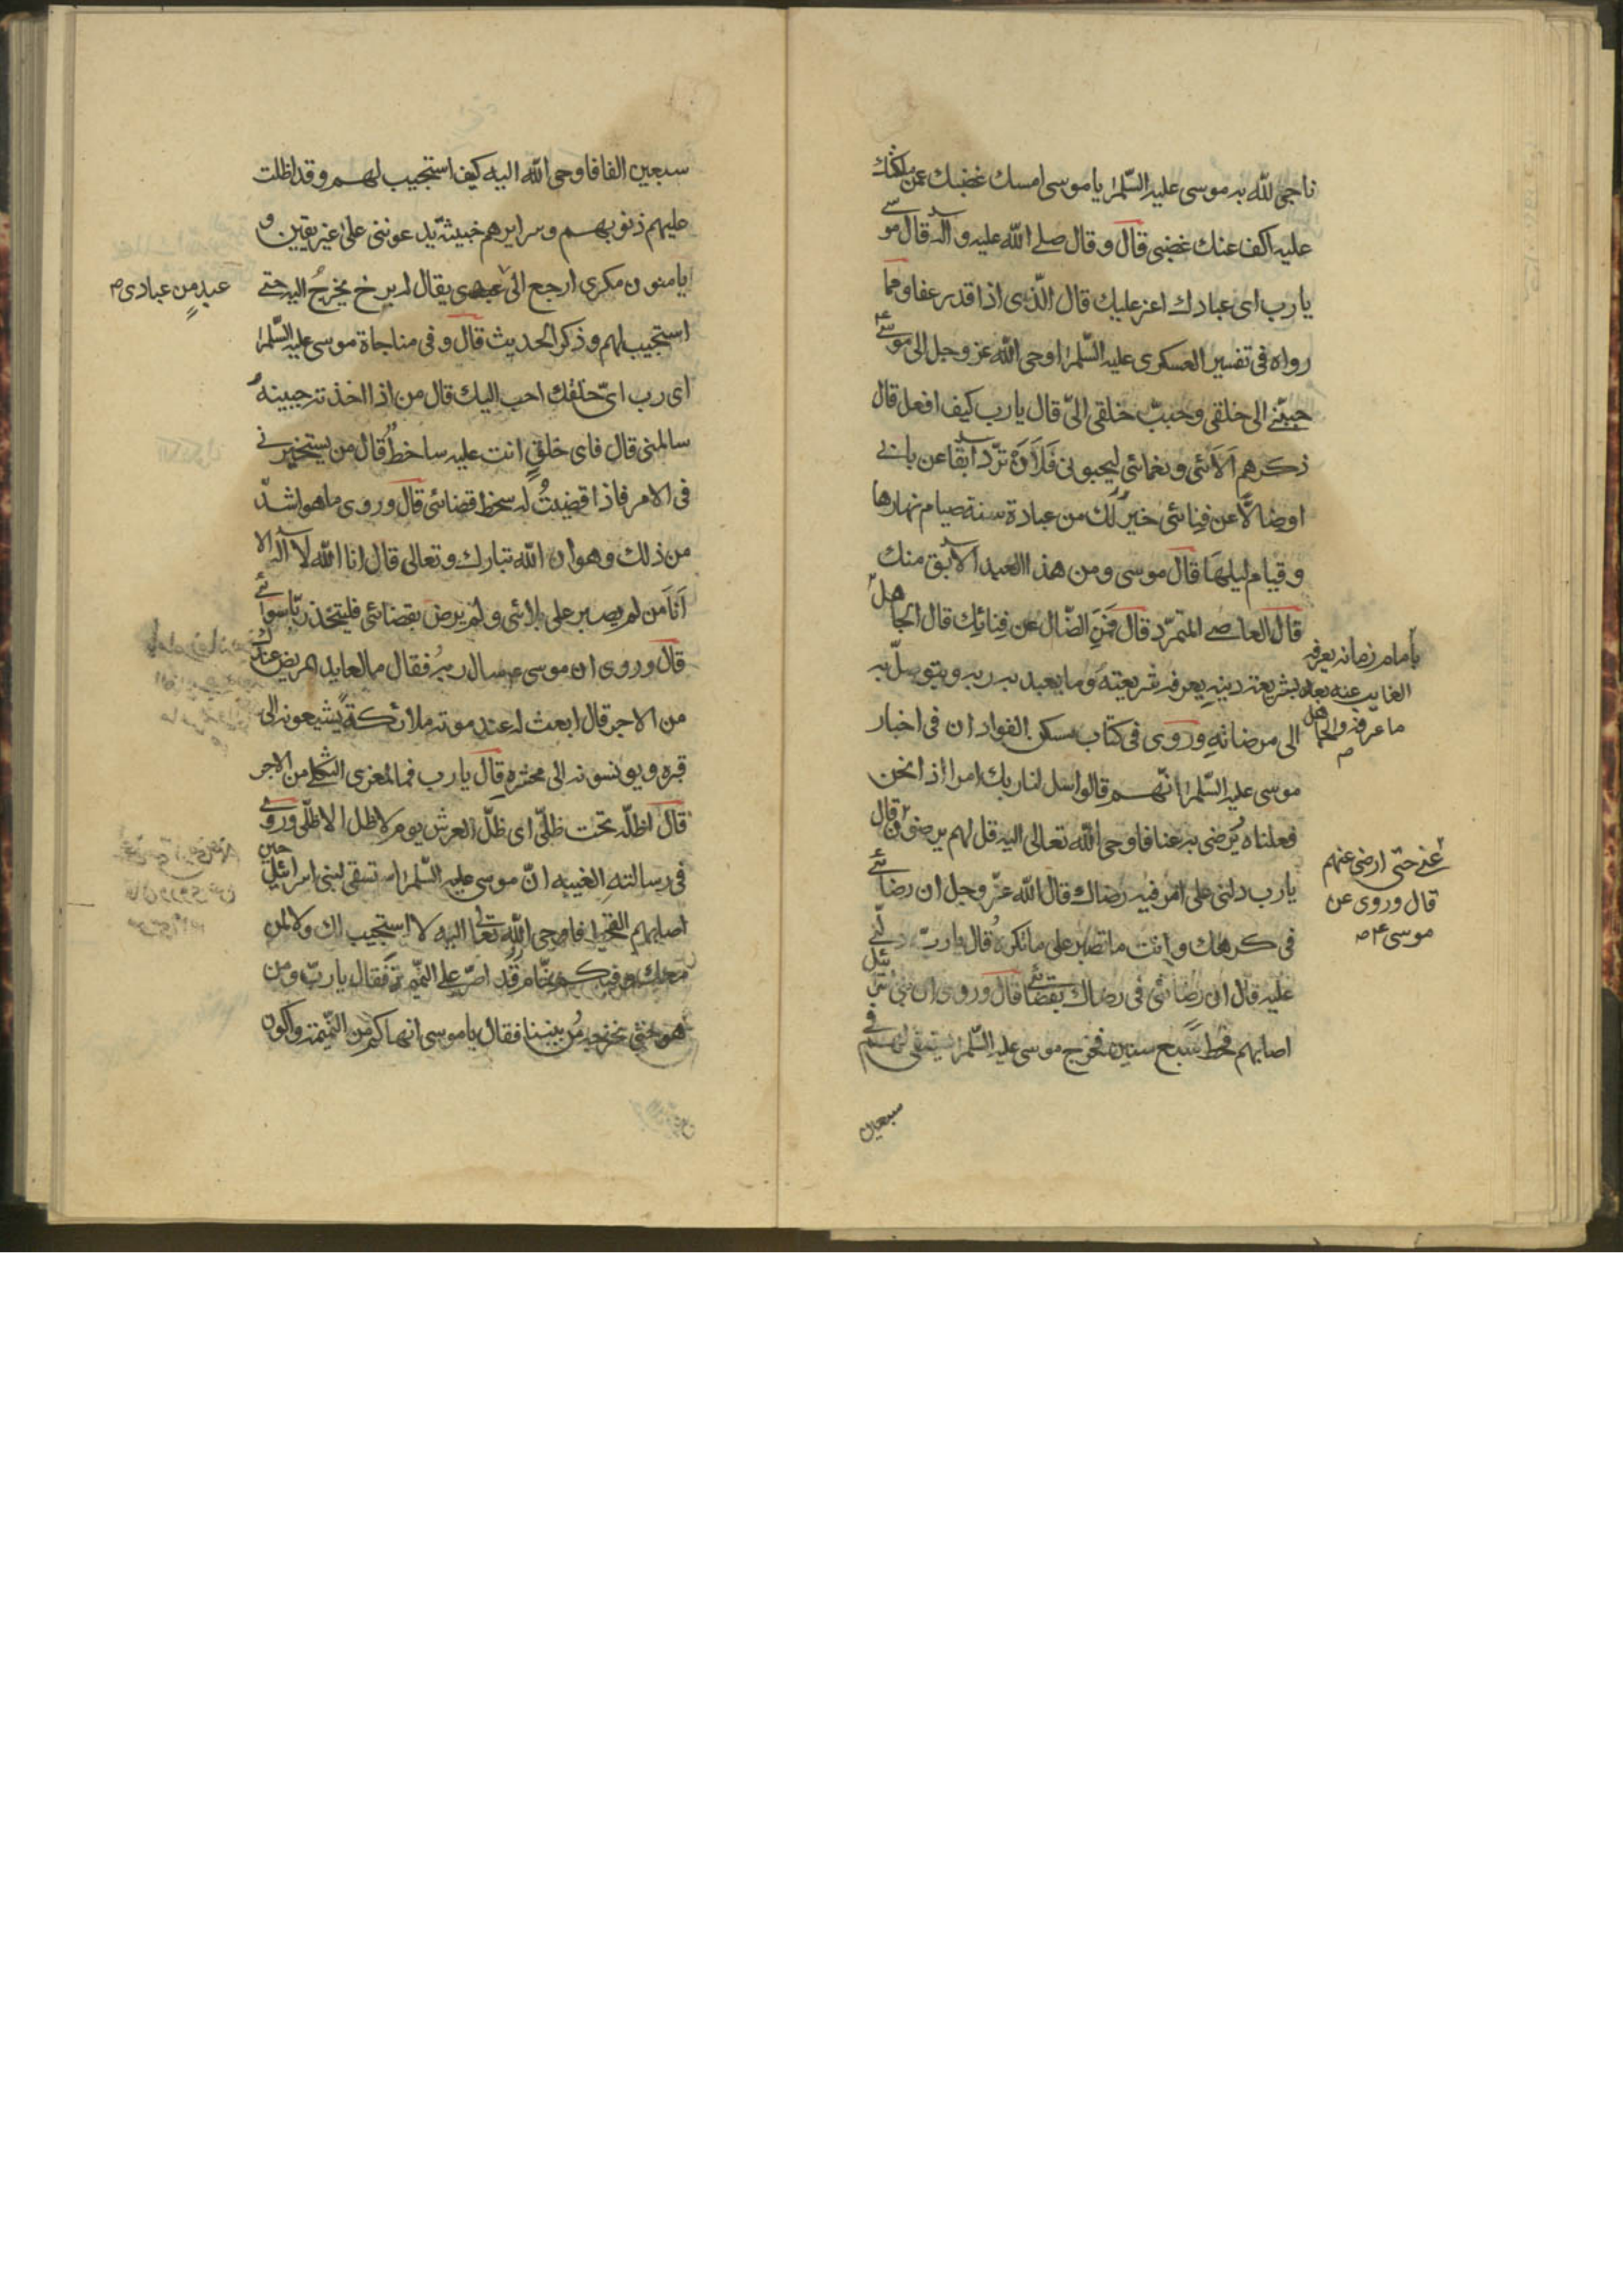 ناجى لله به موسى عليه السلم يا موسى امسك غضبك عمن ملكتك
عليه اكف عنك غضبى قال وقال صلى الله عليه وآله قال موسى
يا رب اى عبادك اعز عليك قال الّذى اذا قدر عفا ومما
رواه فى تفسير العسكرى عليه السّلم اوحى الله عز وجل الى موسى ع
حببّنى الى خلقى وحبب خلقى الىّ قال يا رب كيف افعل قال
ذكرهم آلائى ونعمائى ليحبونى فلان تردّ آبقا عن بابى
اوضالّا عن فنائى خير لك من عبادة سنة صيام نهارها
وقيام ليلها قال موسى ومن هذا العبد الآبق منك
قال العاصى المتمرّد قال فمن الضّال عن فنائك قال الجاهل
بامام زمانه يعرفه
الغايب عنه بعد
ما عرفه والجاهل
بشريعة دينه يعرفه شريعته وما يعبد به ربه ويتوصلّ به
الى مرضاته وروى فى كتاب مسكن الفواد ان فى اخبار
موسى عليه السّلم انّهم قالوا سل لنا ربك امرا اذا نحن
فعلناه يرضى به عنا فاوحى الله تعالى اليه قل لهم يرضون وقال
عنى حتى ارضى عنهم
قال وروى عن
موسى ع
يا رب دلنى على امر فيه رضاك قال الله عزّ وجل ان رضائى
فى كرهك وانت ما تصبر على ما تكره قال يا ربّ دلّنى
عليه قال ان رضائى فى رضاك بقضائى قال وروى ان بنى اسرائيل
اصابهم قحط سبع سنين فخرج موسى عليه السّلم يستسقى لهم فى
سبعين
سبعين الفا فاوحى الله اليه كيف استجيب لهم وقد اظلت
عليهم ذنوبهم وسرايرهم خبيثة يدعوننى على غير يقين و
يامنون مكرى ارجع الى عبدى يقال له برخ يخرج اليه حتى
عبدٍ من عبادى
استجيب لهم وذكر الحديث قال وفى مناجاة موسى عليه السّلم
اى رب اىّ خلقك احب اليك قال من اذا اخذت حبيبه
سالمنى قال فاى خلقٍ انت عليه ساخط قال من يستخيرنى
فى الامر فاذا قضيتُ له سخط قضائى قال وروى ما هو اشدّ
من ذلك وهو ان الله تبارك وتعالى قال انا الله لا اله الا
انا من لم يصبر على بلائى ولم يرض بقضائى فليتخذ ربّا سوائى
قال وروى ان موسى ع سال ربه فقال ما لعايد المريض عندك
من الاجر قال ابعث له عند موته ملائكة يشيعونه الى
قبره ويونسونه الى محشره قال يا رب فما لمعزى الثكلى من الاجر
قال اظلّه تحت ظلّى اى ظلّ العرش يوم لا ظل الا ظلّى وروى
فى رسالته الغيبه انّ موسى عليه السّلم استسقى لبنى اسرائيل حين
اصابهم القحط فاوحى الله تعالى اليه لا استجيب لك ولا لمن
معك وفيكم نمّام قد اصرّ على النّميمة فقال يا ربّ ومن
هو حتى نخرجه من بيننا فقال يا موسى انهاكم من النّميمة واكون